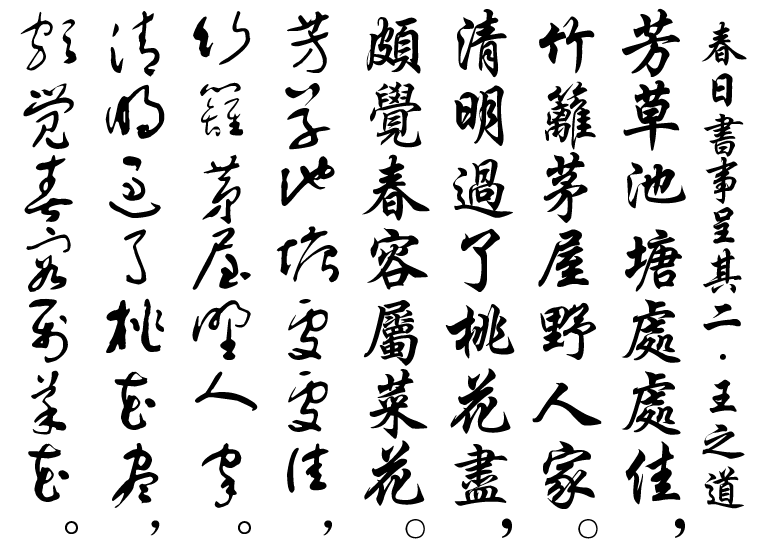 春日書事呈其二・王之道
芳草池塘處處佳，
竹籬茅屋野人家。
清明過了桃花盡，
頗覺春容屬菜花。
芳草池塘處處佳，
竹籬茅屋野人家。
清明過了桃花盡，
頗覺春容屬菜花。